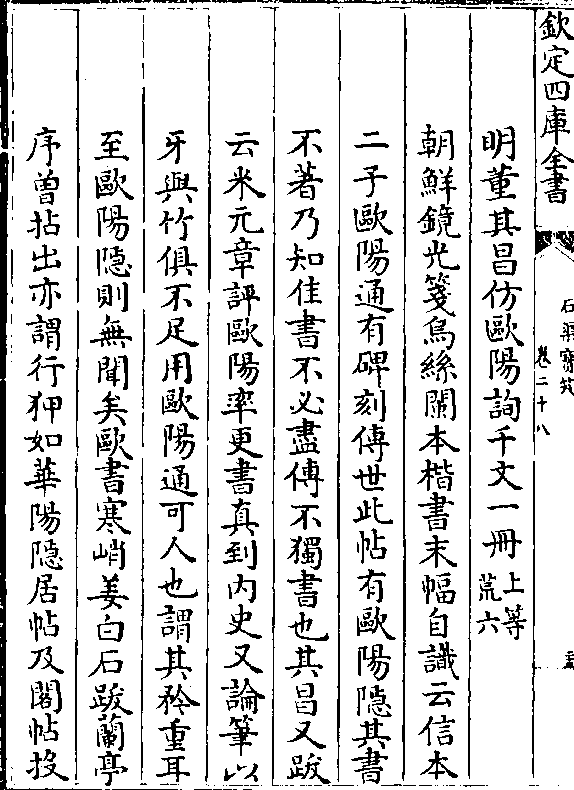 欽定四庫全書
石渠寶笈
卷二十八
明董其昌仿歐陽詢千文一冊上等荒六
朝鮮鏡光箋烏絲闌本楷書末幅自識云信本
二子歐陽通有碑刻傳世此帖有歐陽隱其書
不著乃知佳書不必盡傳不獨書也其昌又跋
云米元章評歐陽率更書真到內史又論筆以
牙與竹俱不足用歐陽通可人也謂其矜重耳
至歐陽隱則無聞矣歐書寒峭姜白石跋蘭亭
序曾拈出亦謂行狎如華陽隱居帖及閣帖投